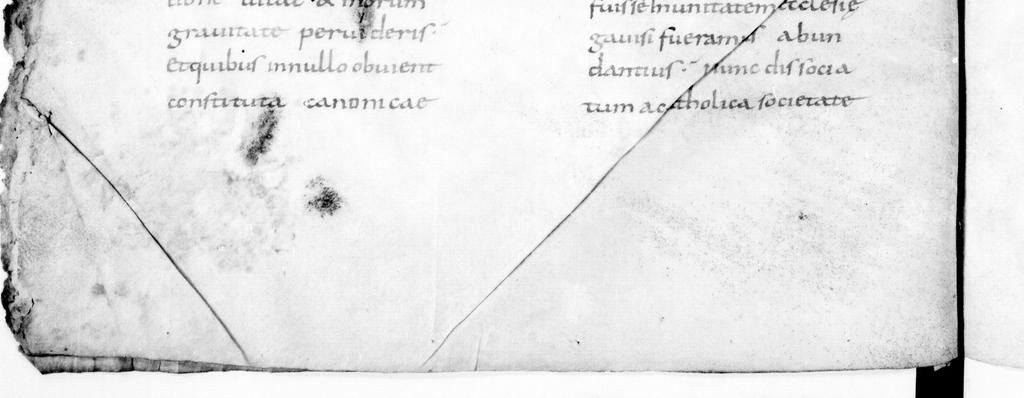 uitae & morum
grauitate peruideris
etquibus innullo obuient
constituta canonicae
fuisse munitatem ecclesie
gauisi fueramus abun
dantius nunc dissocia
tum acatholica societate